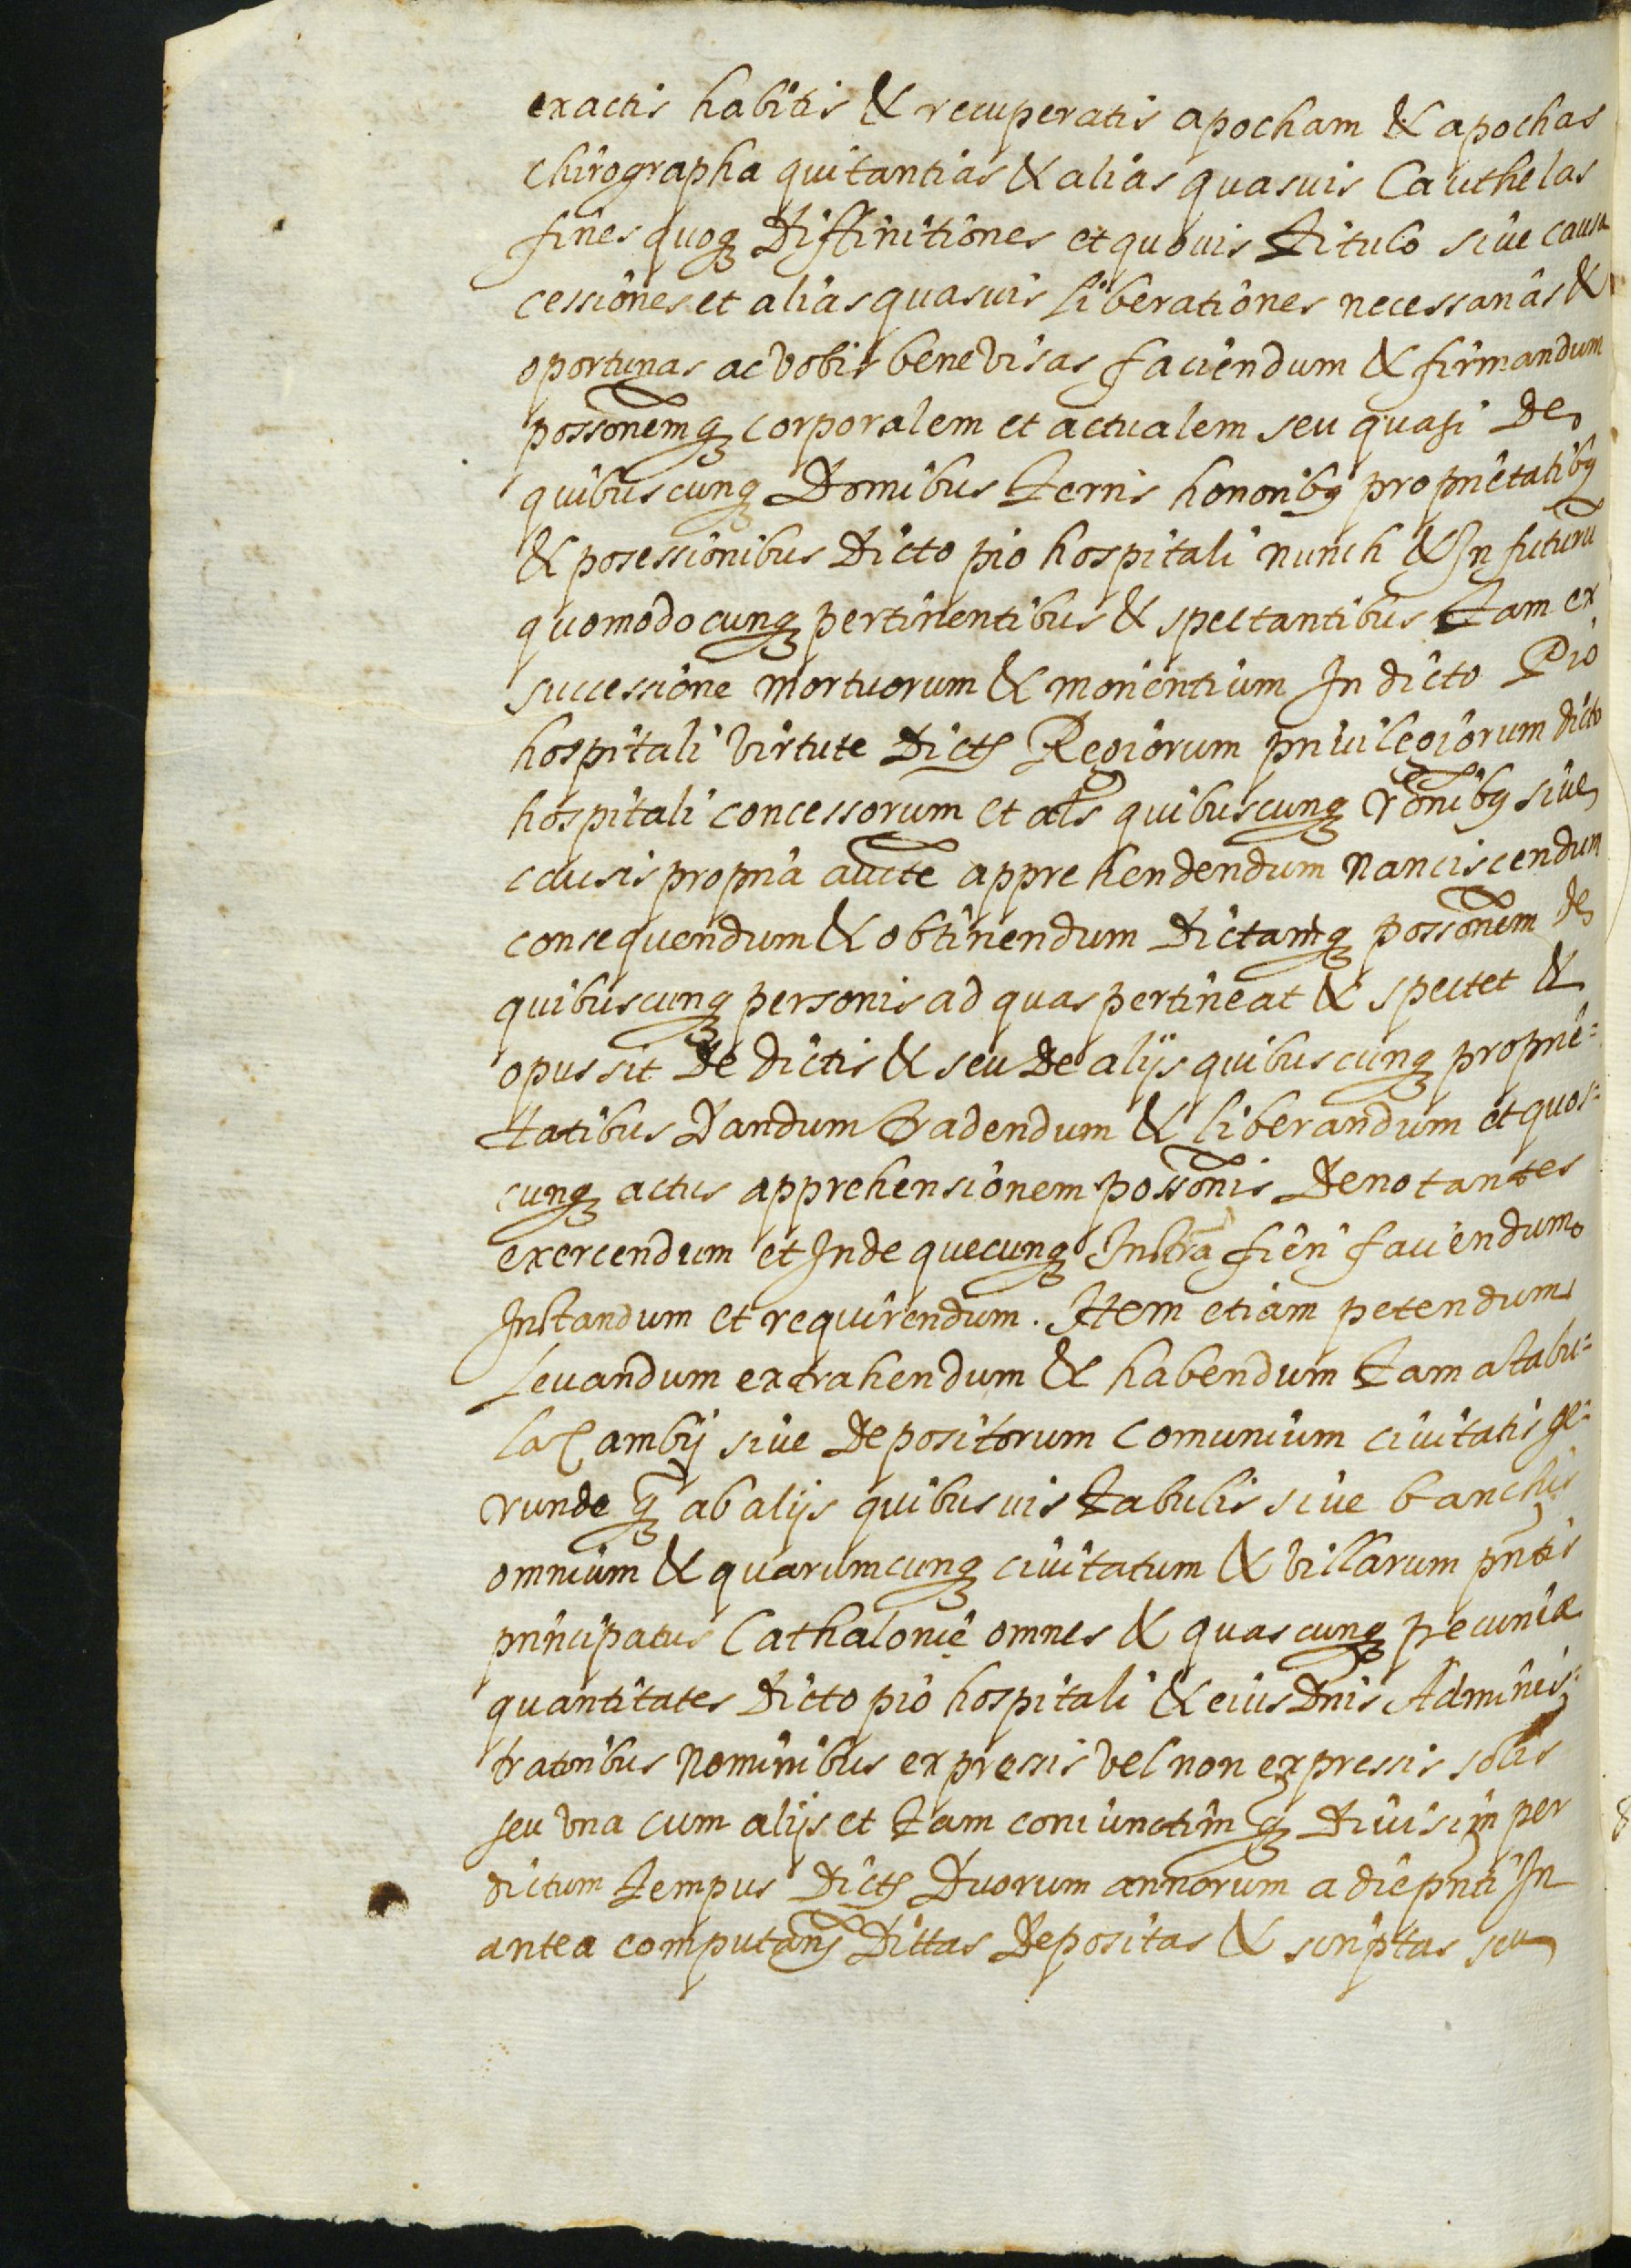 exactis habitis & recuperatis apocham & apochas
chirographa quitantias & alias quasuis Cauthelas
fines quoqʒ Diffinitiones et quouis titulo siue causa
cessiones et alias quasuis liberationes necessarias &
oportunas ac vobis bene visas faciendum & firmandum
possonemqʒ corporalem et actualem seu quasi De
quibuscunqʒ Domibus terris honoribꝰ proprietatibꝰ
& posessionibus Dicto pio hospitali nunch & In futurū
quomodocunqʒ pertinentibus & spectantibus tam ex
successione mortuorum & morientium In dicto Pio
hospitali virtute Dictꝝ Regiorum priuilegiorum dicto
hospitali concessorum et als quibuscunqʒ rōnibꝰ siue
causis propria aucte apprehendendum nanciscendum
consequendum & obtinendum Dictamqʒ possonem de
quibuscunqʒ personis ad quas pertineat & spectet &
opus sit De dictis & seu De alijs quibuscunqʒ proprie=
tatibus Dandum tradendum & liberandum et quos=
cunqʒ actus apprehensionem possonis Denotantes
exercendum et Inde quecunqʒ Instra fieri faciendum
Instandum et requirendum. Item etiam petendum
Leuandum extrahendum & habendum tam a tabu=
la Cambij siue Depositorum comunium ciuitatis ge=
runde qʒ ab alijs quibusuis tabulis siue banchis
omnium & quarumcunqʒ ciuitatum & villarum pntis
principatus Cathalonie omnes & quascunqʒ pecuniæ
quantitates Dicto pio hospitali & eius Dnis Adminis=
tratoribus nominibus expressis vel non expressis solis
seu vna cum alijs et tam coniunctim qʒ Diuisim per
dictum tempus Dictꝝ Duorum annorum a die pnti In
antea computanꝝ Dittas Depositas & scriptas seu